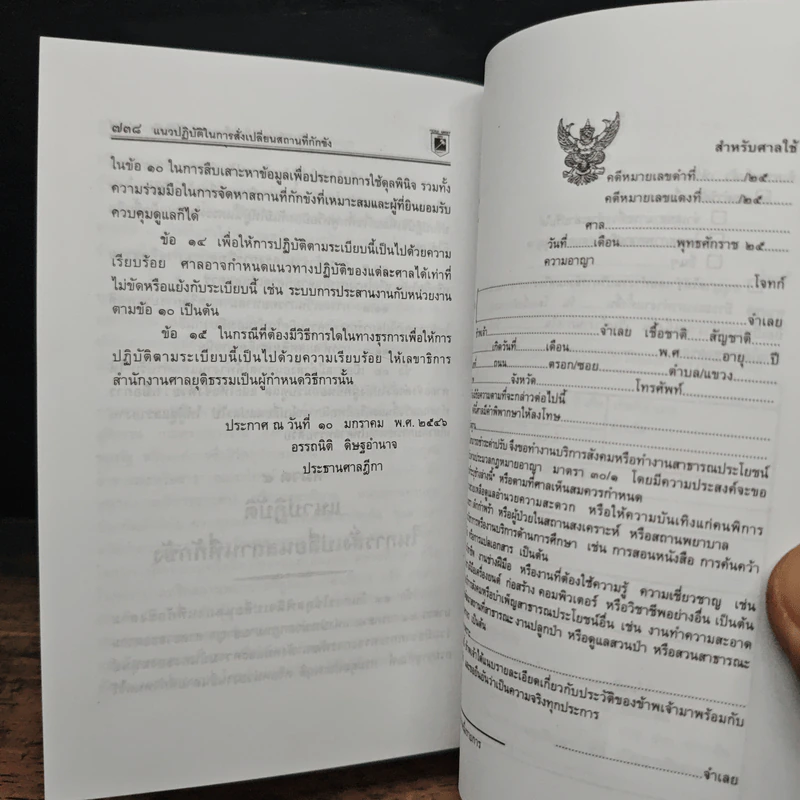 ๗๓๘ แนวปฏิบัติในการสั่งเปลี่ยนสถานที่กักขัง
ในข้อ ๑๐ ในการสืบเสาะหาข้อมูลเพื่อประกอบการใช้ดุลพินิจ รวมทั้ง
ความร่วมมือในการจัดหาสถานที่กักขังที่เหมาะสมและผู้ที่ยินยอมรับ
ควบคุมดูแลก็ได้
ข้อ ๑๔ เพื่อให้การปฏิบัติตามระเบียบนี้เป็นไปด้วยความ
เรียบร้อย ศาลอาจกำหนดแนวทางปฏิบัติของแต่ละศาลได้เท่าที่
ไม่ขัดหรือแย้งกับระเบียบนี้ เช่น ระบบการประสานงานกับหน่วยงาน
ตามข้อ ๑๐ เป็นต้น
ข้อ ๑๕ ในกรณีที่ต้องมีวิธีการใดในทางธุรการเพื่อให้การ
ปฏิบัติตามระเบียบนี้เป็นไปด้วยความเรียบร้อย ให้เลขาธิการ
สำนักงานศาลยุติธรรมเป็นผู้กำหนดวิธีการนั้น
ประกาศ ณ วันที่ ๑๐ มกราคม พ.ศ. ๒๕๔๖
อรรถนิติ ดิษฐอำนาจ
ประธานศาลฎีกา
สำหรับศาลใช้
คดีหมายเลขดำที่............/๒๕.....
คดีหมายเลขแดงที่.........../๒๕.....
ศาล
วันที่.......เดือน...............พุทธศักราช ๒๕.....
ความอาญา
โจทก์
จำเลย
จำเลย เชื้อชาติ.......สัญชาติ.......
เกิดวันที่.......เดือน................พ.ศ.........อายุ......ปี
ถนน..........ตรอก/ซอย..........ตำบล/แขวง
จังหวัด................โทรศัพท์
ข้อความตามที่จะกล่าวต่อไปนี้
มีคำพิพากษาให้ลงโทษ
ค่าปรับ จึงขอทำงานบริการสังคมหรือทำงานสาธารณประโยชน์
ประมวลกฎหมายอาญา มาตรา ๓๐/๑ โดยมีความประสงค์จะขอ
หรือตามที่ศาลเห็นสมควรกำหนด
ช่วยเหลือดูแลอำนวยความสะดวก หรือให้ความบันเทิงแก่คนพิการ
เด็กกำพร้า หรือผู้ป่วยในสถานสงเคราะห์ หรือสถานพยาบาล
หรืองานบริการด้านการศึกษา เช่น การสอนหนังสือ การค้นคว้า
เอกสาร เป็นต้น
งานช่างฝีมือ หรืองานที่ต้องใช้ความรู้ ความเชี่ยวชาญ เช่น
เครื่องยนต์ ก่อสร้าง คอมพิวเตอร์ หรือวิชาชีพอย่างอื่น เป็นต้น
หรือบำเพ็ญสาธารณประโยชน์อื่น เช่น งานทำความสะอาด
สถานที่สาธารณะ งานปลูกป่า หรือดูแลสวนป่า หรือสวนสาธารณะ
เป็นต้น
ได้แนบรายละเอียดเกี่ยวกับประวัติของข้าพเจ้ามาพร้อมกับ
ยืนยันว่าเป็นความจริงทุกประการ
จำเลย